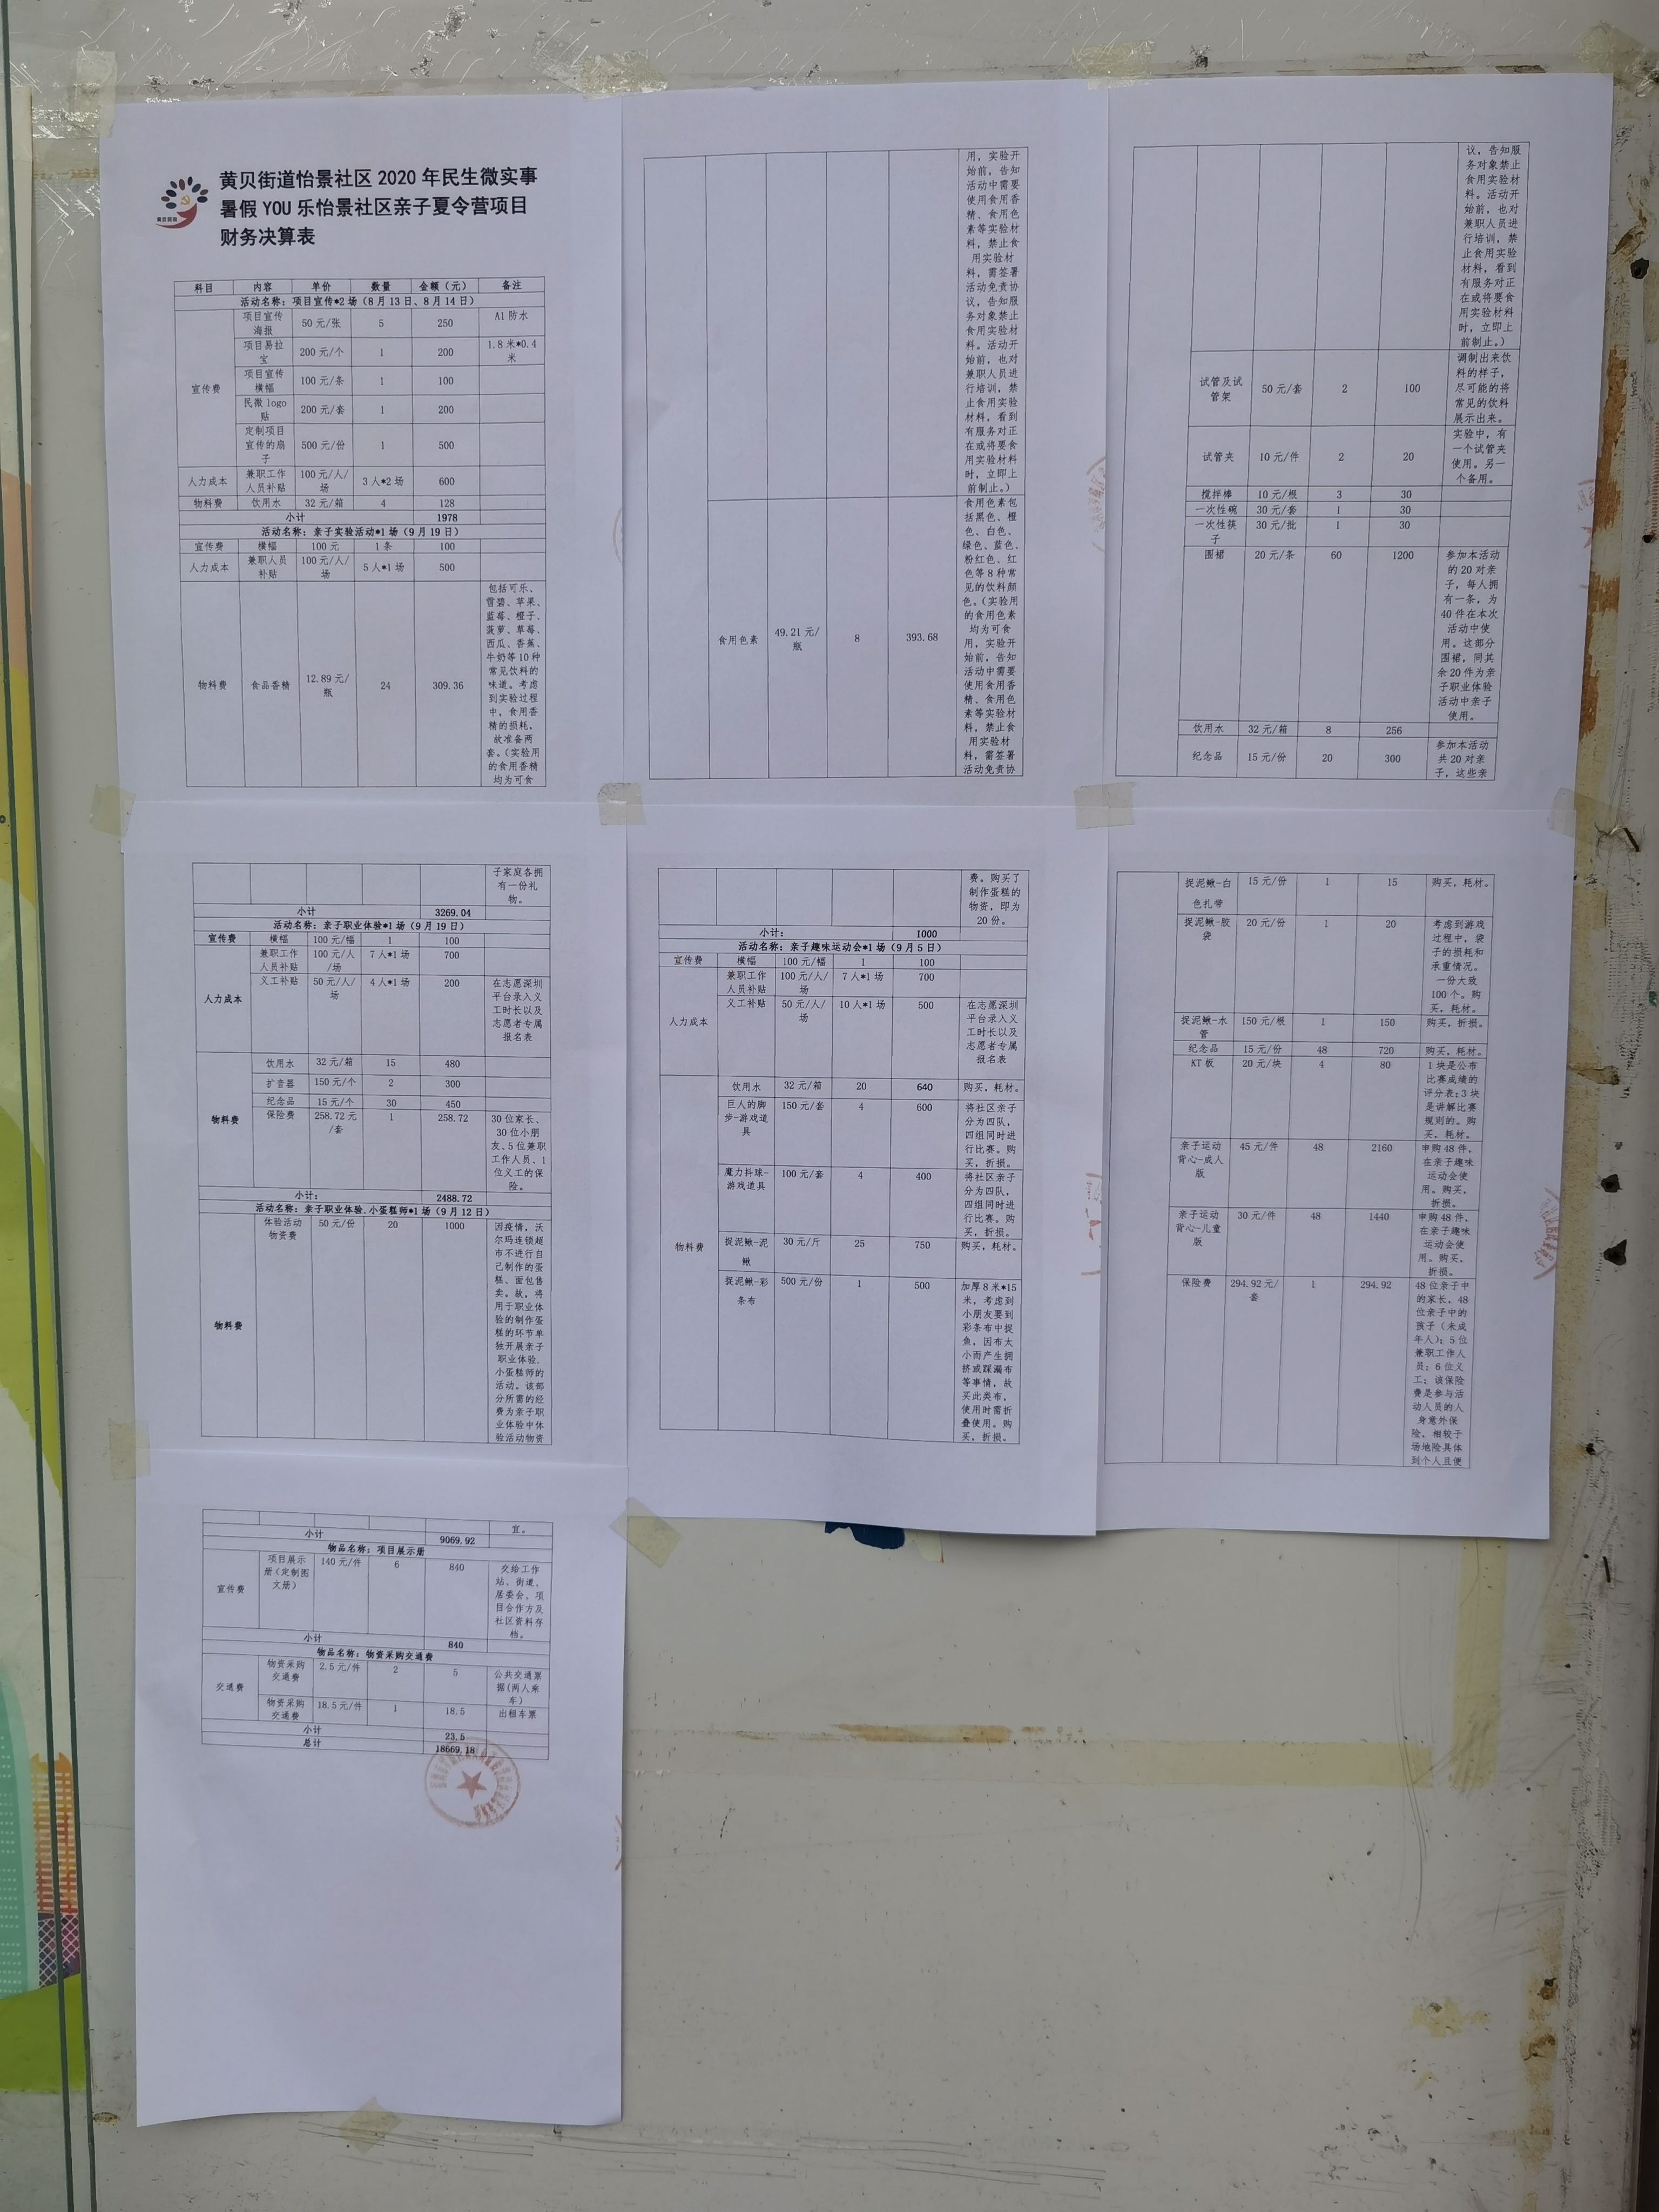 黄贝街道怡景社区 2020 年民生微实事
暑假 YOU 乐怡景社区亲子夏令营项目
财务决算表
科目 内容 单价 数量 金额（元） 备注
活动名称：项目宣传*2 场（8 月 13 日、8 月 14 日）
宣传费
项目宣传海报 50 元/张 5 250 A1 防水
项目易拉宝 200 元/个 1 200 1.8 米*0.4 米
项目宣传横幅 100 元/条 1 100
民微 logo 贴 200 元/套 1 200
定制项目宣传的扇子 500 元/份 1 500
人力成本 兼职工作人员补贴 100 元/人/场 3 人*2 场 600
物料费 饮用水 32 元/箱 4 128
小计 1978
活动名称：亲子实验活动*1 场（9 月 19 日）
宣传费 横幅 100 元 1 条 100
人力成本 兼职人员补贴 100 元/人/场 5 人*1 场 500
物料费 食品香精 12.89 元/瓶 24 309.36
包括可乐、
雪碧、苹果、
蓝莓、橙子、
菠萝、草莓、
西瓜、香蕉、
牛奶等 10 种
常见饮料的
味道。考虑
到实验过程
中，食用香
精的损耗，
故准备两
套。（实验用
的食用香精
均为可食
用，实验开
始前，告知
活动中需要
使用食用香
精、食用色
素等实验材
料，禁止食
用实验材
料，需签署
活动免责协
议，告知服
务对象禁止
食用实验材
料。活动开
始前，也对
兼职人员进
行培训，禁
止食用实验
材料，看到
有服务对正
在或将要食
用实验材料
时，立即上
前制止。）
食用色素 49.21 元/瓶 8 393.68
食用色素包
括黑色、橙
色、白色、
绿色、蓝色、
粉红色、红
色等 8 种常
见的饮料颜
色。（实验用
的食用色素
均为可食
用，实验开
始前，告知
活动中需要
使用食用香
精、食用色
素等实验材
料，禁止食
用实验材
料，需签署
活动免责协
议，告知服
务对象禁止
食用实验材
料。活动开
始前，也对
兼职人员进
行培训，禁
止食用实验
材料，看到
有服务对正
在或将要食
用实验材料
时，立即上
前制止。）
试管及试管架 50 元/套 2 100
调制出来饮
料的样子，
尽可能的将
常见的饮料
展示出来。
试管夹 10 元/件 2 20
实验中，有
一个试管夹
使用。另一
个备用。
搅拌棒 10 元/根 3 30
一次性碗 30 元/套 1 30
一次性筷子 30 元/批 1 30
围裙 20 元/条 60 1200
参加本活动
的 20 对亲
子，每人拥
有一条，为
40 件在本次
活动中使
用。这部分
围裙，同其
余 20 件为亲
子职业体验
活动中亲子
使用。
饮用水 32 元/箱 8 256
纪念品 15 元/份 20 300
参加本活动
共 20 对亲
子，这些亲
子家庭各拥
有一份礼
物。
小计 3269.04
活动名称：亲子职业体验*1 场（9 月 19 日）
宣传费 横幅 100 元/幅 1 100
人力成本
兼职工作人员补贴 100 元/人/场 7 人*1 场 700
义工补贴 50 元/人/场 4 人*1 场 200
在志愿深圳
平台录入义
工时长以及
志愿者专属
报名表
物料费
饮用水 32 元/箱 15 480
扩音器 150 元/个 2 300
纪念品 15 元/个 30 450
保险费 258.72 元/套 1 258.72
30 位家长、
30 位小朋
友、5 位兼职
工作人员、1
位义工的保
险。
小计： 2488.72
活动名称：亲子职业体验.小蛋糕师*1 场（9 月 12 日）
物料费 体验活动物资费 50 元/份 20 1000
因疫情，沃
尔玛连锁超
市不进行自
己制作的蛋
糕、面包售
卖。故，将
用于职业体
验的制作蛋
糕的环节单
独开展亲子
职业体验.
小蛋糕师的
活动。该部
分所需的经
费为亲子职
业体验中体
验活动物资
费。购买了
制作蛋糕的
物资，即为
20 份。
小计： 1000
活动名称：亲子趣味运动会*1 场（9 月 5 日）
宣传费 横幅 100 元/幅 1 100
人力成本
兼职工作人员补贴 100 元/人/场 7 人*1 场 700
义工补贴 50 元/人/场 10 人*1 场 500
在志愿深圳
平台录入义
工时长以及
志愿者专属
报名表
物料费
饮用水 32 元/箱 20 640 购买，耗材。
巨人的脚步-游戏道具 150 元/套 4 600
将社区亲子
分为四队，
四组同时进
行比赛。购
买，折损。
魔力抖球-游戏道具 100 元/套 4 400
将社区亲子
分为四队，
四组同时进
行比赛。购
买，折损。
捉泥鳅-泥鳅 30 元/斤 25 750 购买，耗材。
捉泥鳅-彩条布 500 元/份 1 500
加厚 8 米*15
米，考虑到
小朋友要到
彩条布中捉
鱼，因布大
小而产生拥
挤或踩漏布
等事情，故
买此类布，
使用时需折
叠使用。购
买，折损。
捉泥鳅-白色扎带 15 元/份 1 15 购买，耗材。
捉泥鳅-胶袋 20 元/份 1 20
考虑到游戏
过程中，袋
子的损耗和
承重情况。
一份大致
100 个。购
买，耗材。
捉泥鳅-水管 150 元/根 1 150 购买，折损。
纪念品 15 元/份 48 720 购买，耗材。
KT 板 20 元/块 4 80
1 块是公布
比赛成绩的
评分表；3 块
是讲解比赛
规则的。购
买，耗材。
亲子运动背心-成人版 45 元/件 48 2160
申购 48 件，
在亲子趣味
运动会使
用。购买，
折损。
亲子运动背心-儿童版 30 元/件 48 1440
申购 48 件，
在亲子趣味
运动会使
用。购买，
折损。
保险费 294.92 元/套 1 294.92
48 位亲子中
的家长，48
位亲子中的
孩子（未成
年人）；5 位
兼职工作人
员；6 位义
工；该保险
费是参与活
动人员的人
身意外保
险，相较于
场地险具体
到个人且便
宜。
小计 9069.92
物品名称：项目展示册
宣传费 项目展示册（定制图文册） 140 元/件 6 840
交给工作
站、街道、
居委会、项
目合作方及
社区资料存
档。
小计 840
物品名称：物资采购交通费
交通费
物资采购交通费 2.5 元/件 2 5 公共交通票据（两人乘车）
物资采购交通费 18.5 元/件 1 18.5 出租车票
小计 23.5
总计 18669.18